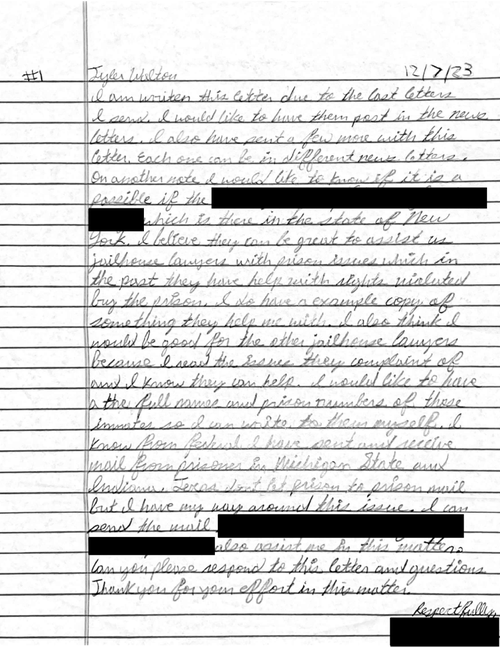 #1 Tyler Whitton 12/7/23
I am writen this letter due to the last letters
I send. I would like to have them post in the news
letters. I also have sent a few more with this
letter. Each one can be in different news letters.
On another note I would like to know if it is a
possible if the
which is there in the state of New
York. I believe they can be great to assist us
jailhouse lawyers with prison issues which in
the past they have help with rights violated
by the prison. I do have a example copy of
something they help me with. I also think I
would be good for the other jailhouse lawyers
because I read the issues they complaint of
and I know they can help. I would like to have
a the full names and prison numbers of those
inmates so I can write to them myself. I
know from Federal I have sent and receive
mail from prisoner in Michigan State and
Indiana. Texas don't let prison to prison mail
but I have my way around this issue. I can
send the mail
also assist me in this matter.
Can you please respond to this letter and questions
Thank you for your effort in this matter.
Respectfully,